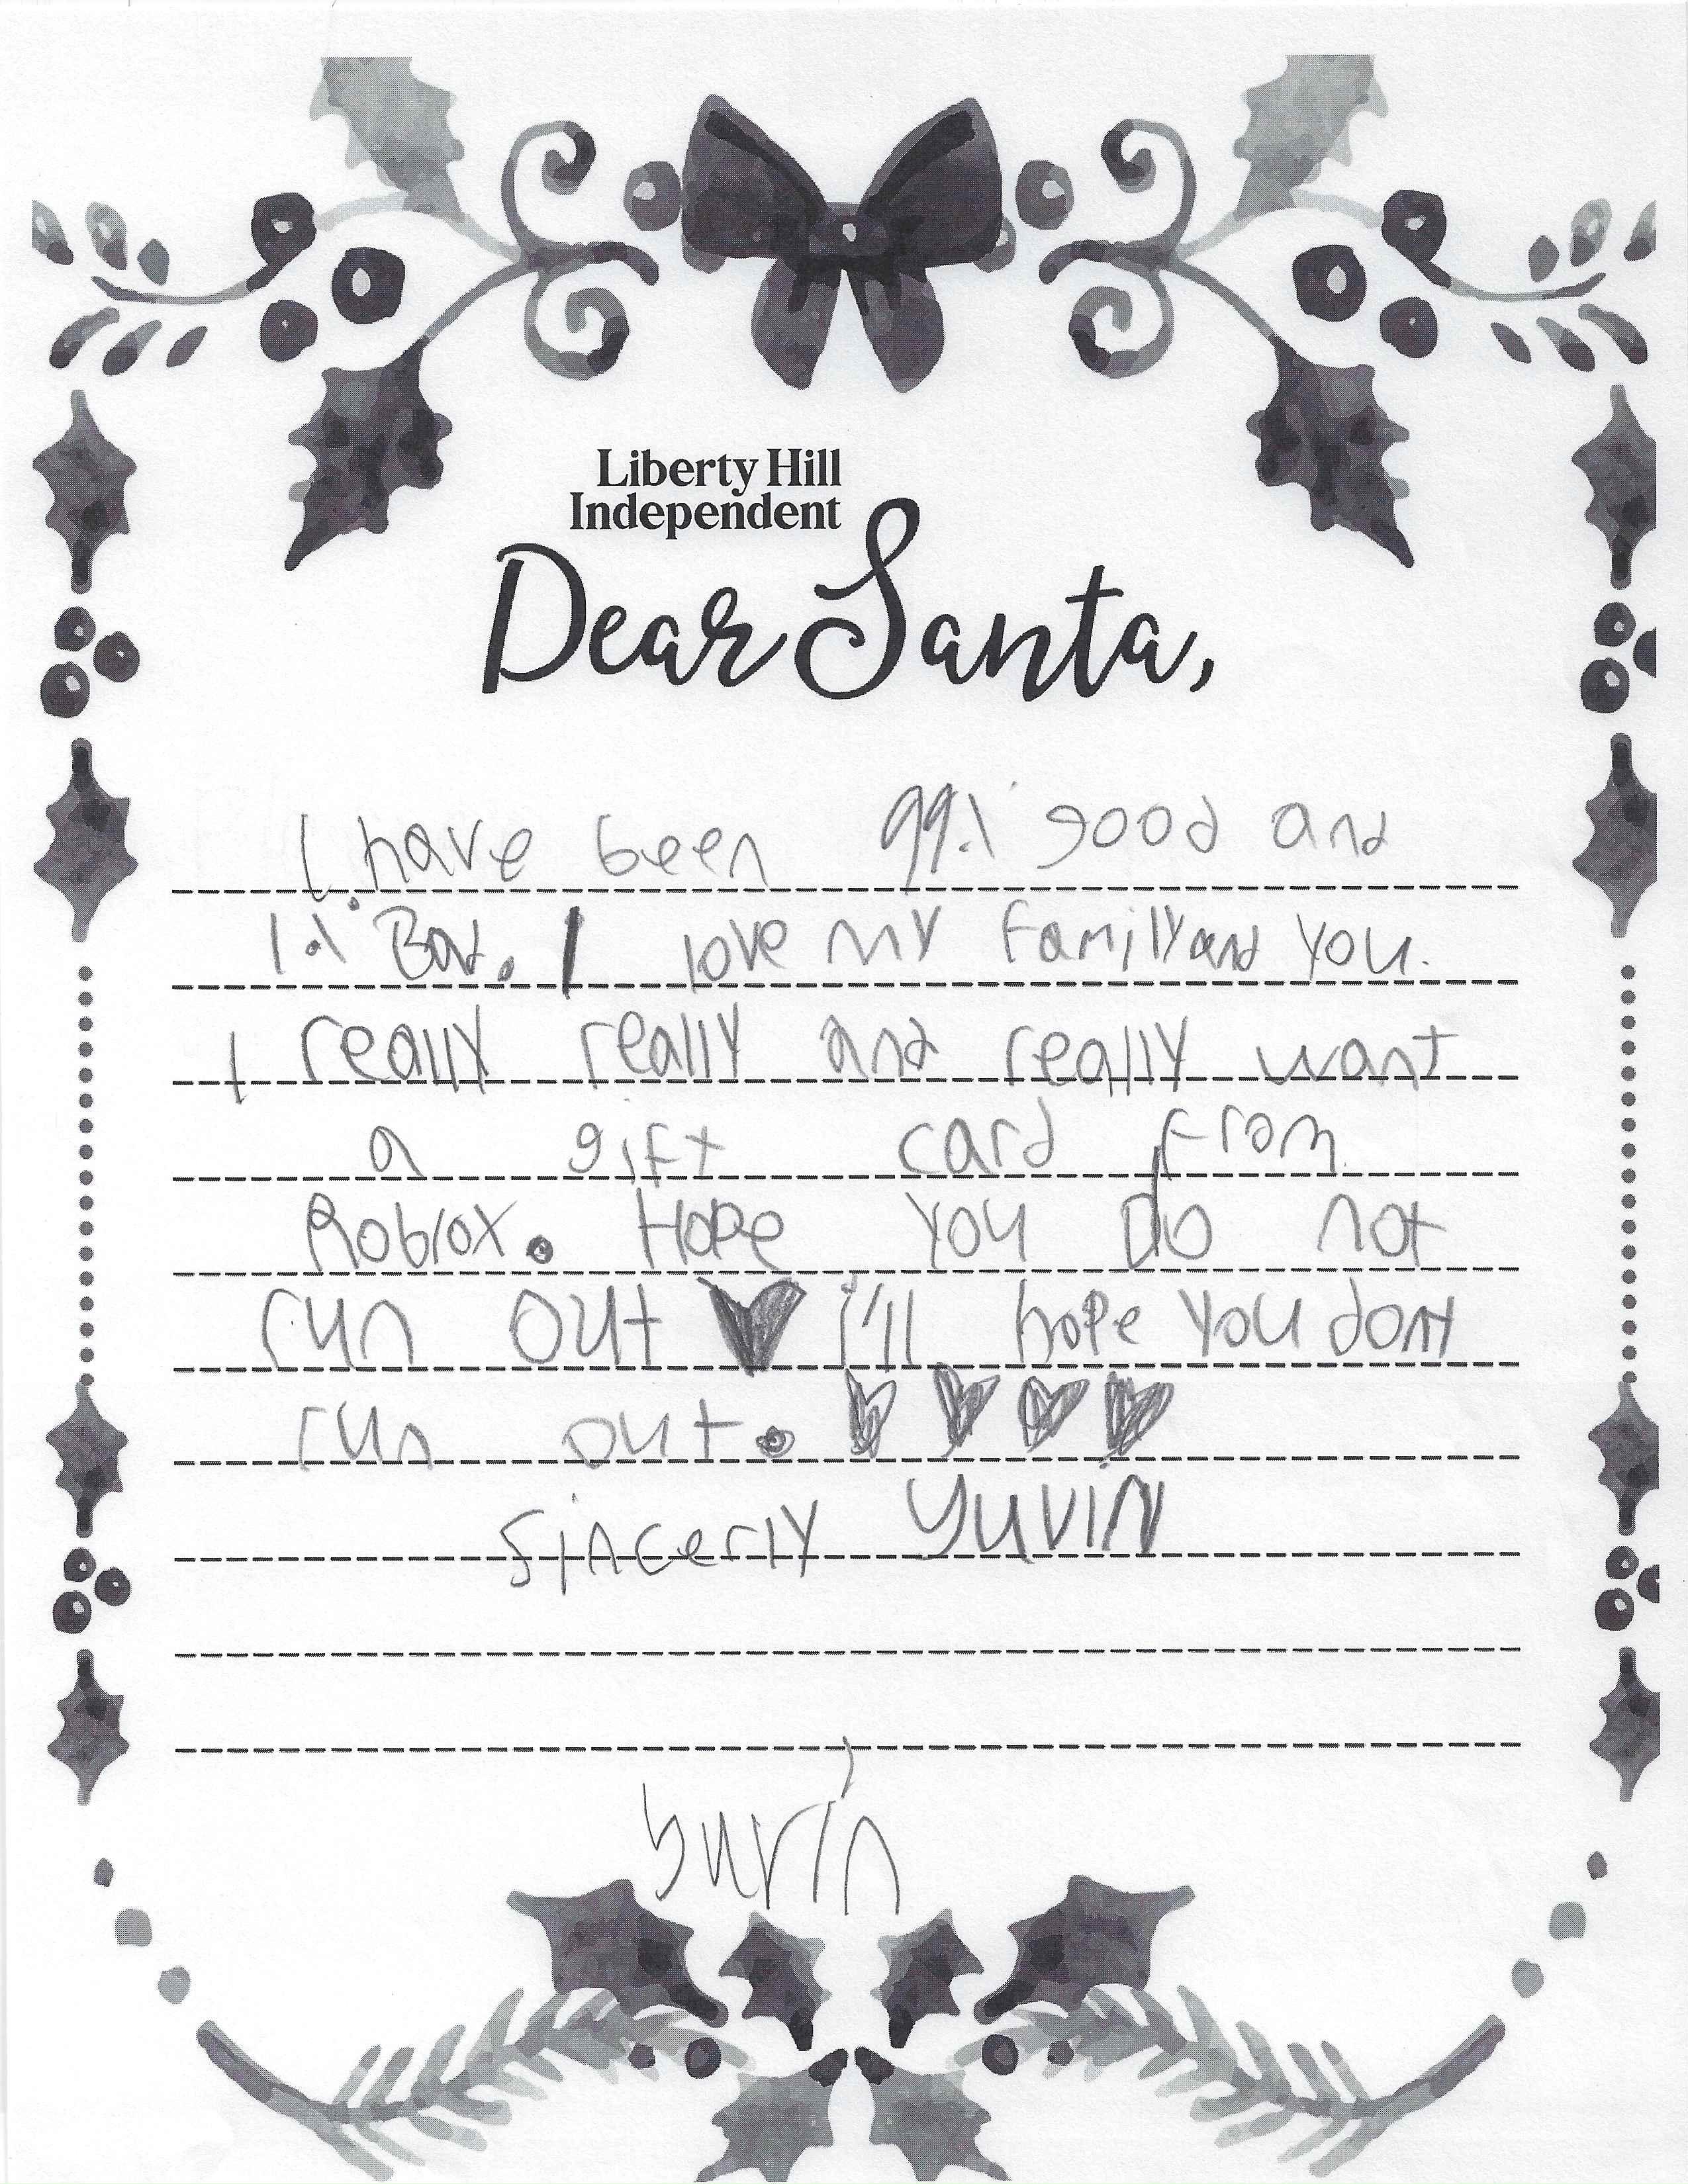 Liberty Hill
Independent
Dear Santa,
I have been 99% good and
1% Bad. I love my familly and you.
I really really and really want
a gift card from
Roblox. Hope you do not
run out ♥ i'll hope you dont
run out. ♥ ♥ ♥ ♥
sincerly yuvin
yuvin